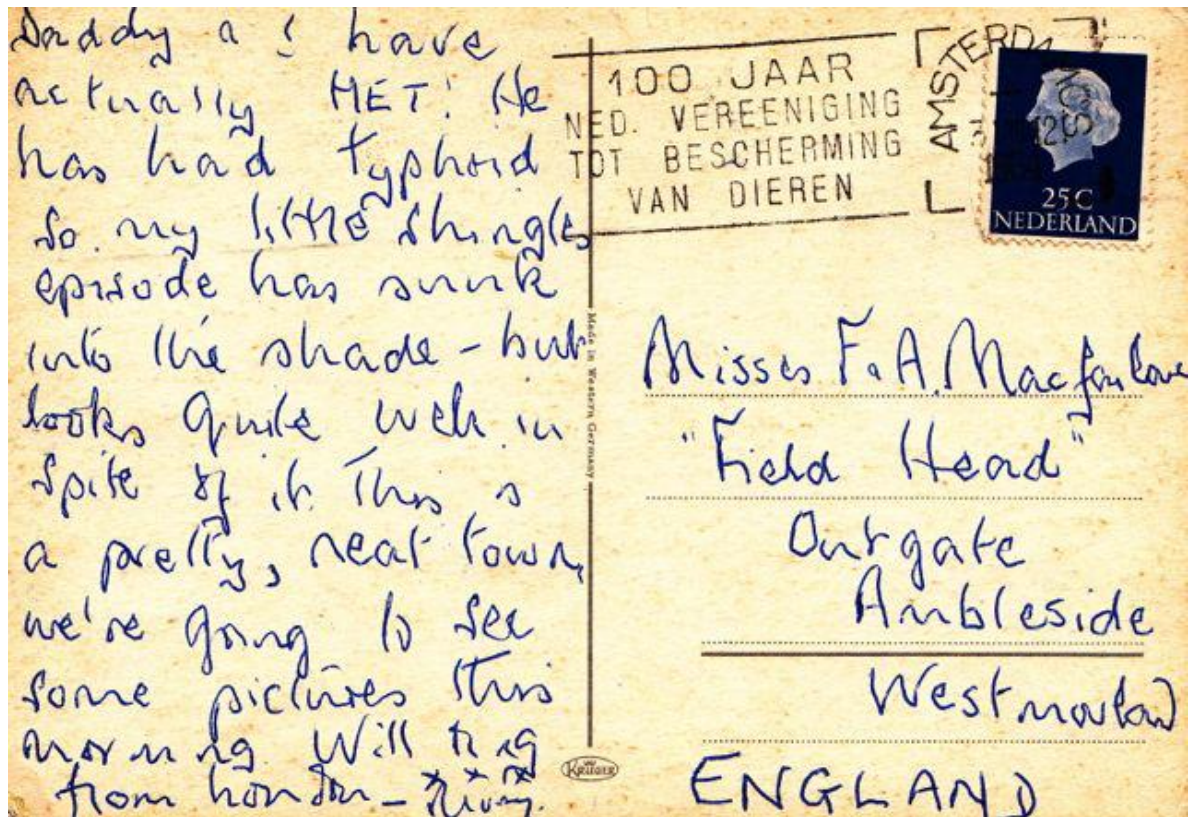 Daddy & I have
actually MET! He
has had typhoid
so my little shingles
episode has sunk
into the shade - but
looks quite well in
spite of it. This is
a pretty, neat town,
we're going to see
some pictures this
morning. Will ring
from London -
100 JAAR
NED. VEREENIGING
TOT BESCHERMING
VAN DIEREN
AMSTERDAM
25C
NEDERLAND
Made in Western Germany
KRÜGER
Misses F. A. Macfarlane
"Field Head"
Outgate
Ambleside
Westmorland
ENGLAND